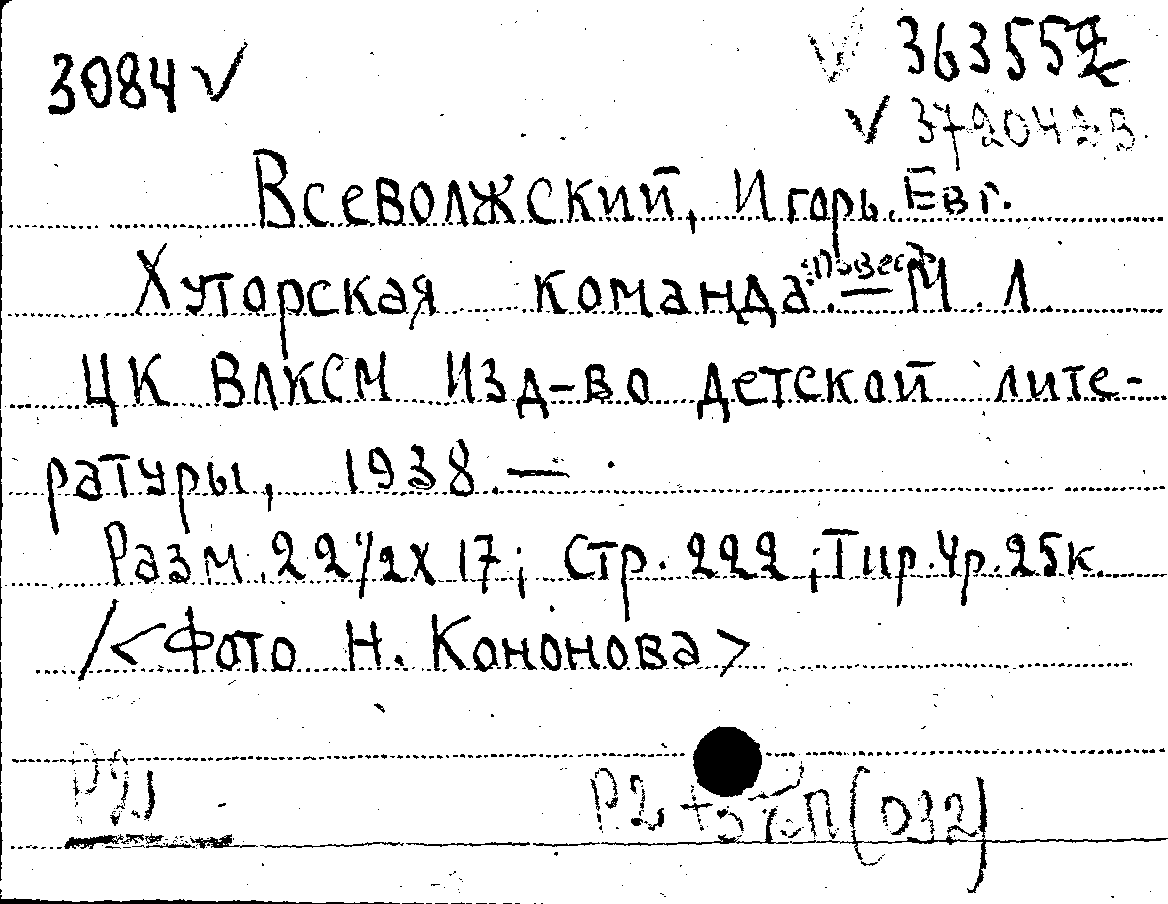 3084 √ √ 363552
√ 3720423
Всеволжский, Игорь Евг.
Хуторская команда: Повесть. — М. Л.
ЦК ВЛКСМ Изд-во детской лите-
ратуры, 1938. —
Разм. 22 1/2 x 17; Стр. 222; Тир. 4р. 25к.
/<Фото Н. Кононова>
Р2 (032)